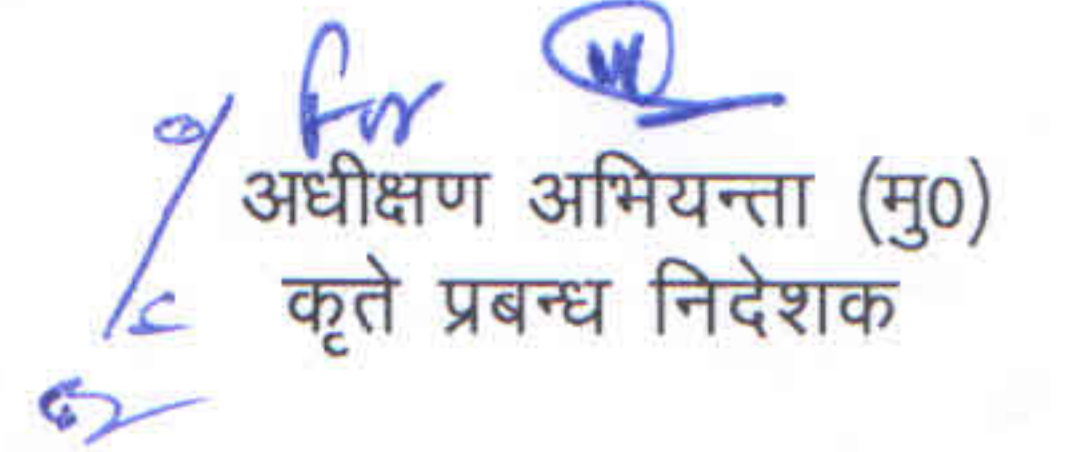 For
अधीक्षण अभियन्ता (मु0)
कृते प्रबन्ध निदेशक